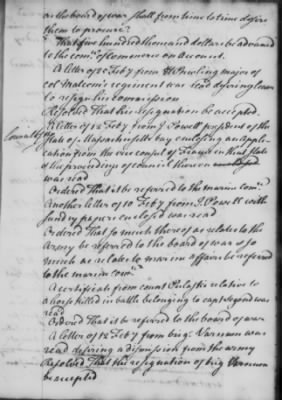 or the board of war shall from time to time desire
them to procure.
That five hundred thousand dollars be advanced
to the com.e of commerce on account.
A letter of 20 Feby from W Pauling major of
col Malcom's regiment was read desiring leave
to resign his commission
Resolved That his resignation be accepted.
A letter of 12 Feby from J. Powell president of the
State of Massachusetts bay enclosing an appli-
cation from the vice consul of France in that State
& the proceedings of council thereon
was read
Ordered That it be referred to the marine com.ee
Another letter of 10 Feby from J. Powell with
sundry papers enclosed was read
Ordered That so much thereof as relates to the
Army be referred to the board of war & so
much as relates to marine affairs be referred
to the marine com.ee
A certificate from count Pulaski relative to
a horse killed in battle belonging to capt Segond was
read
Ordered That it be referred to the board of war
A letter of 12 Feby from brigr Varnum was
read desiring a dismission from the army
Resolved That the resignation of brig Varnum
be accepted